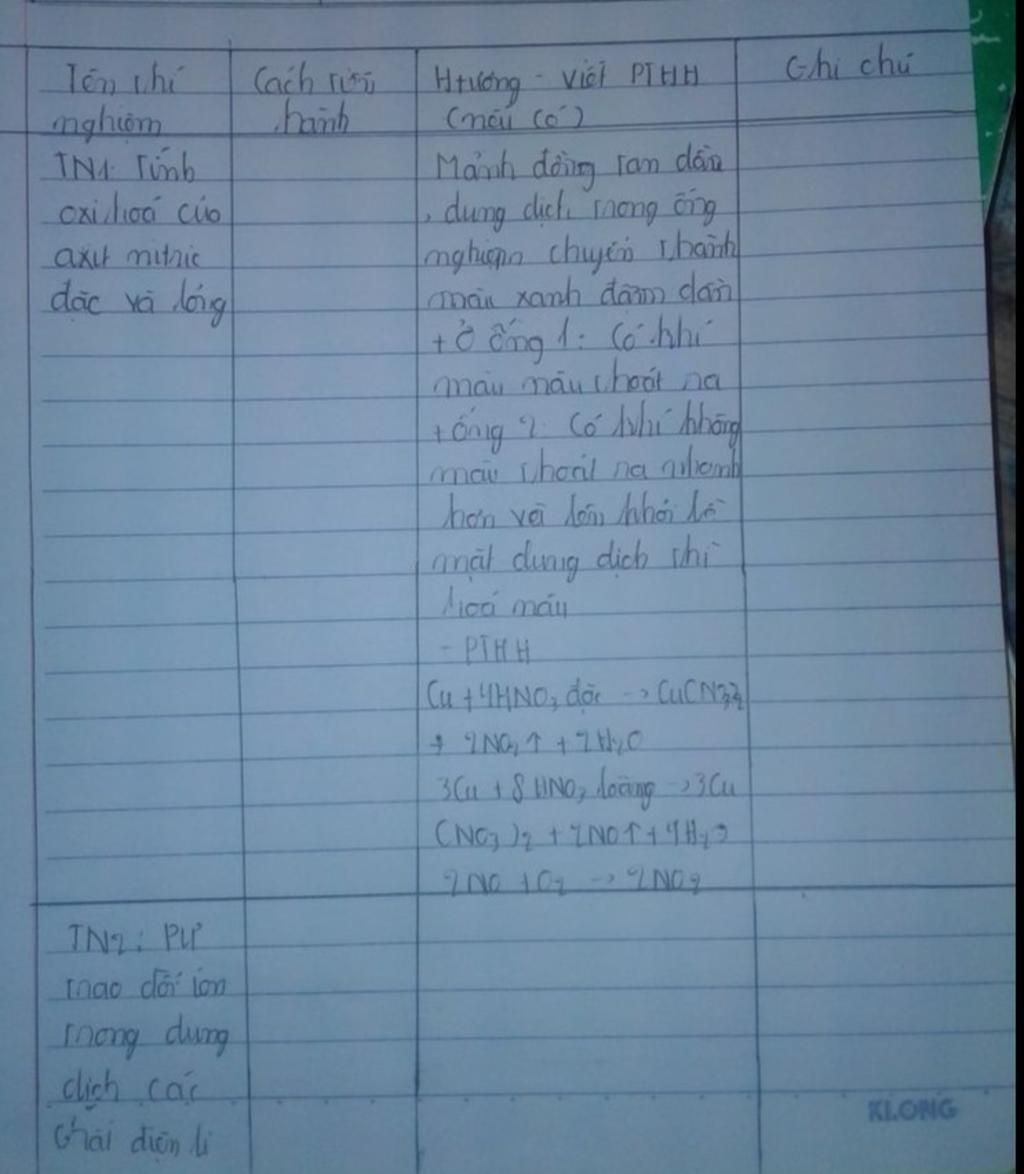 Tên thí nghiệm
Cách tiến hành
Htượng - viết PTHH (nếu có)
Ghi chú
TN1: Tính
oxi hoá của
axit nitric
đặc và lõng
Mảnh đồng tan dần
, dung dịch trong ống
nghiệm chuyển thành
màu xanh đậm dần
+ Ở ống 1: Có khí
màu nâu thoát ra
+ ống 2: Có khí không
màu thoát ra nhanh
hơn và lên khỏi bề
mặt dung dịch thì
hoá nâu
- PTHH
Cu + 4HNO3 đặc -> Cu(NO3)2
+ 2NO2↑ + 2H2O
3Cu + 8HNO3 loãng -> 3Cu
(NO3)2 + 2NO↑ + 4H2O
2NO + O2 -> 2NO2
TN2: PƯ
trao đổi ion
trong dung
dịch các
chất điện li
KLONG